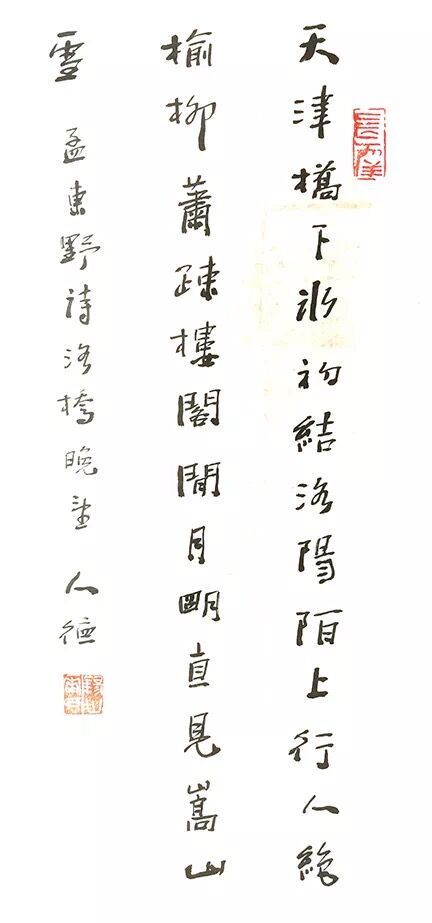 天津橋下冰初結洛陽陌上行人絕
榆柳蕭疎樓閣閒月明直見嵩山
雪 孟東野詩洛橋晚望 人德